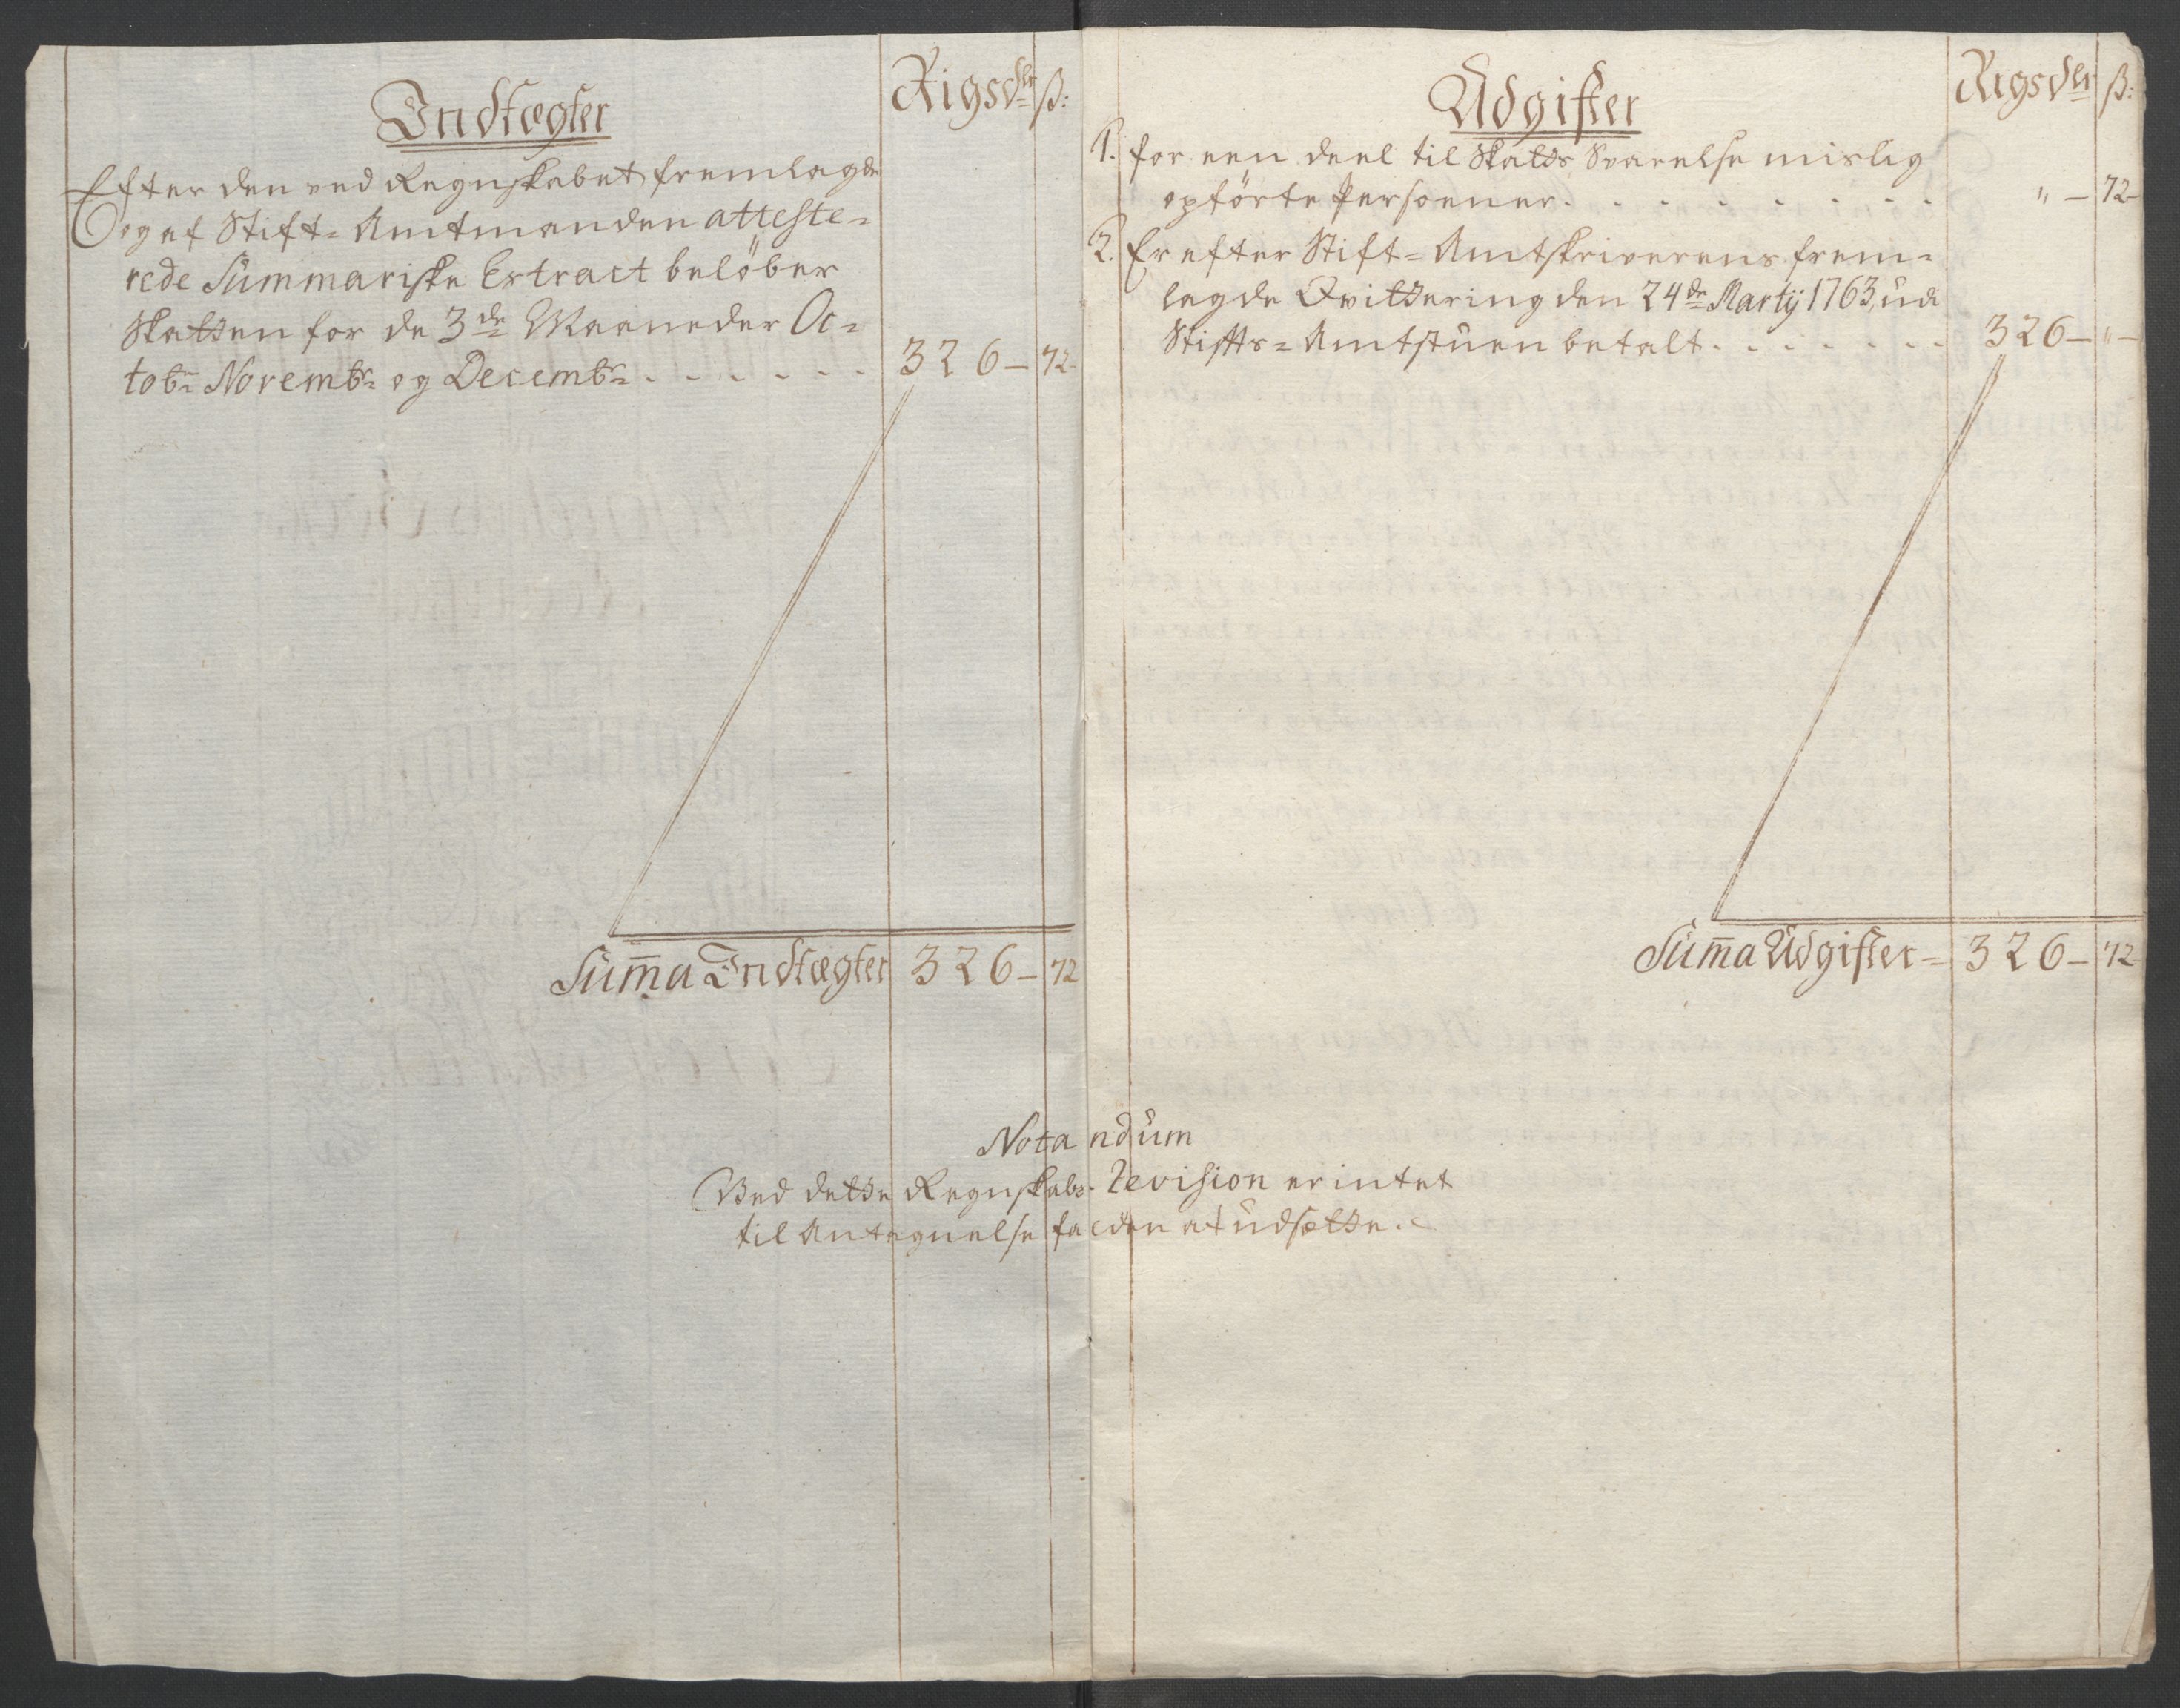 Indtægter
Rigsdlr ß:
Efter den ved Regnskabet fremlagde
og af Stift=Amtmanden atteste=
rede Summariske Extract belöber
Skatten for de 3de Maaneder Oc=
tobr Novembr og Decembr . . . . . . 326 — 72 -
Summa Indtægter 326 — 72
Udgifter
Rigsdlr ß:
1. for een deel til Skatts Svarelse mislig
opförte Persoener . . . . . . . . " — 72 -
2. Er efter Stift=Amtskriverens frem=
lagde Qvittering den 24de Martij 1763, udi
Stifts=Amtstuen betalt . . . . . . . 326 — " —
Summa Udgifter = 326 — 72 -
Notandum
Ved dette Regnskabs Revision er intet
til Antegnelse falden at udsætte.